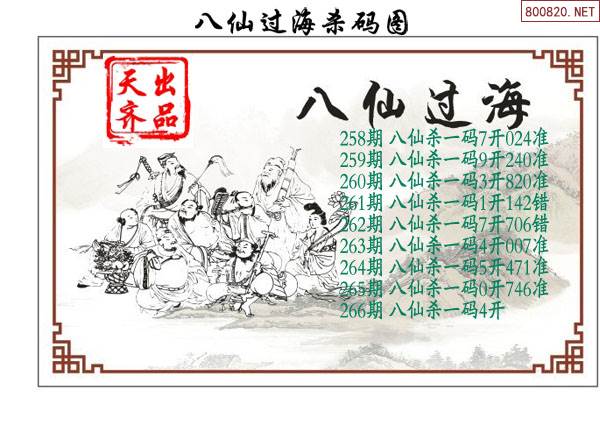 八仙过海杀码图
800820.NET
天齐
出品
八仙过海
258期 八仙杀一码7开024准
259期 八仙杀一码9开240准
260期 八仙杀一码3开820准
261期 八仙杀一码1开142错
262期 八仙杀一码7开706错
263期 八仙杀一码4开007准
264期 八仙杀一码5开471准
265期 八仙杀一码0开746准
266期 八仙杀一码4开